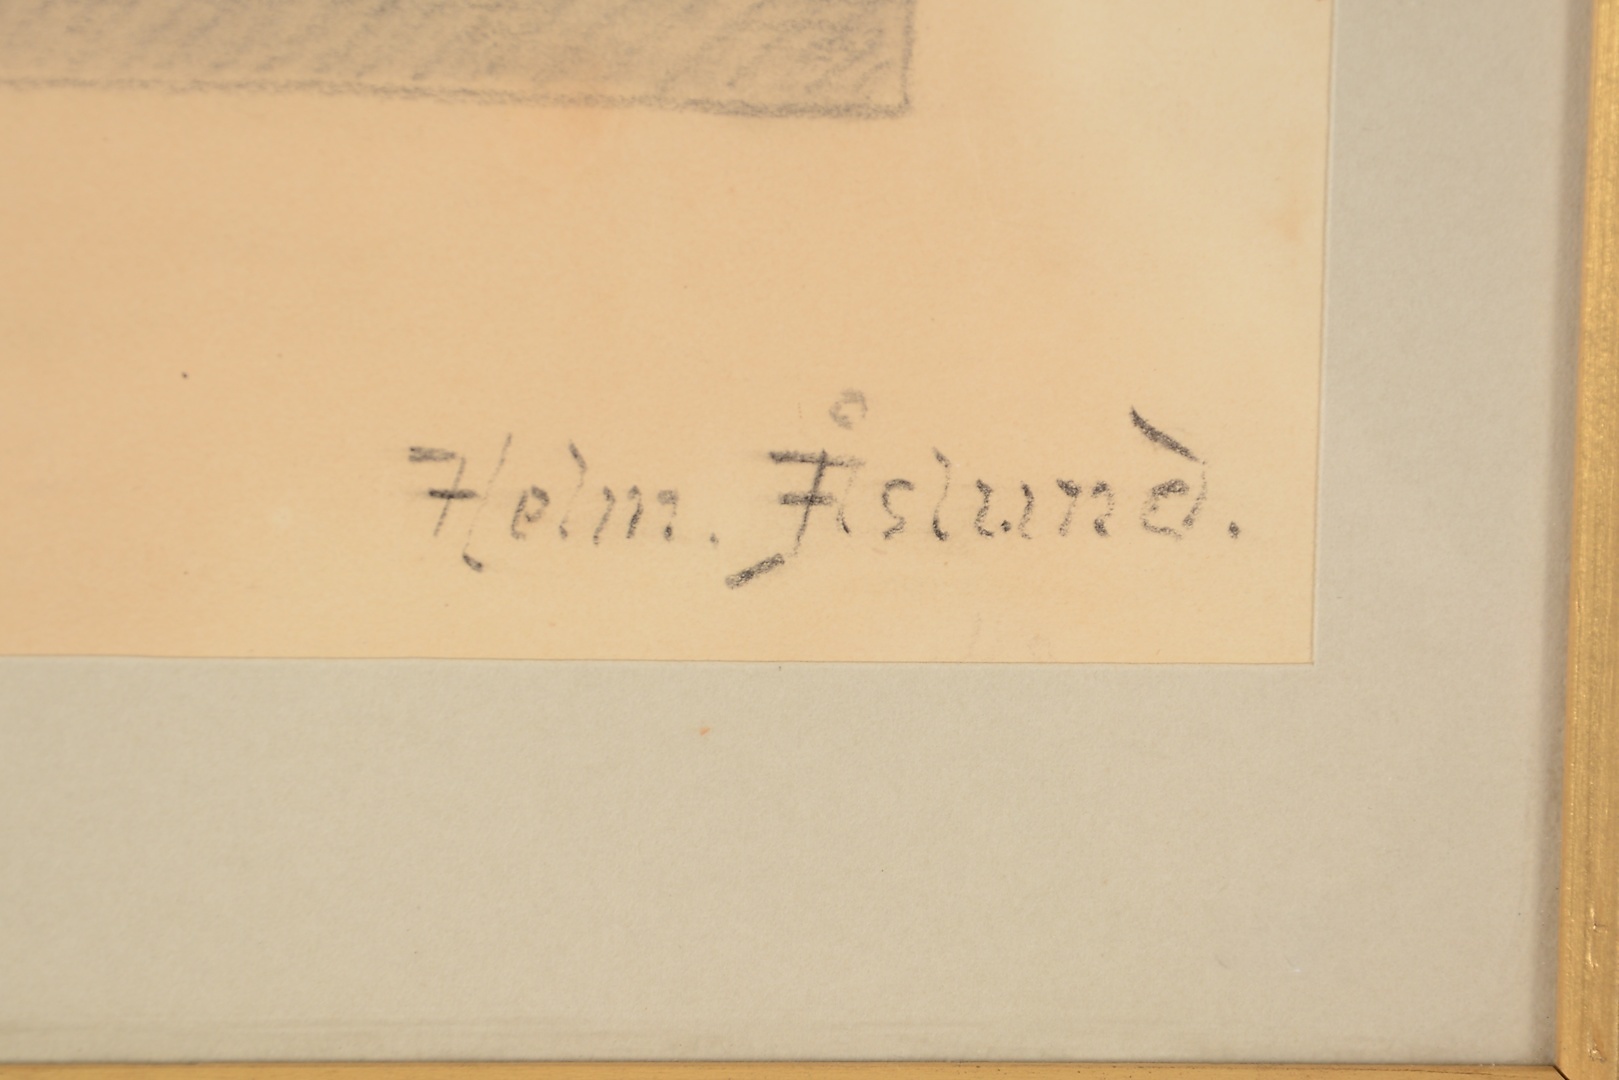 Helm. Åslund.